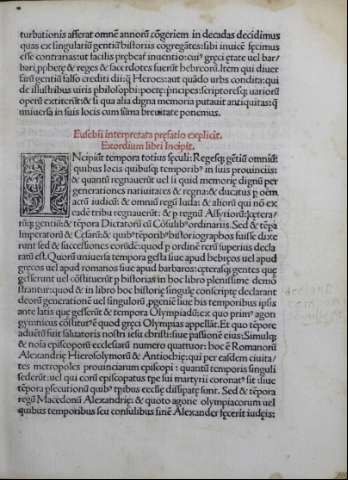 turbationis afferat omnē annorū cōgeriem in decadas decidimus
quas ex singulariū gentiū historiis cogregātes: sibi inuicē fecimus
esse contrarias: ut facilis prębeaf inuentio: cuiꝰ gręci ętate uel bar/
bari, pphetę & reges & sacerdotes fuerūt hebreorū. Item qui diuer
sarū gentiū falso crediti dii: ꝗ Heroes: aut quādo urbs condita: qui
de illustribus uiris philosophi: poetę: prīcipes: scriptoresqꝫ uariorū
operū extiterūt: & si qua alia digna memoria putauit antiquitas: ꝗ
uniuersa in suis locis cum sūma breuitate ponemus.
Eusebii interpretata pręfatio explicit.
Exordium libri Incipit.
INcipiūt tempora totius sęculi: Regesqꝫ gētiū omniū:
quibus locis quibusqꝫ temporibꝰ in suis prouinciis:
& quantū regnauerūt uel si quid memorię dignū per
generationes natiuitates & regna: & ducatus p oem
actū iudicū: & omniū regū Iudas: & aliorū qui nō ex
eadē tribu regnauerūt: & p regnū Assyriorū: cętera/
rūqꝫ gentiū & tēpora Dictatorū cū Cōsulibꝰ ordinariis. Sed & tēpa
Imperatorū & Cęsarū: & quibꝰ tēporibꝰ historiographos fuisse dixe
runt sed & successiones eorūdē: quod p ordinē rerū superius decla
ratū est. Quorū uniuersa tempora gesta siue apud hebręos uel apud
gręcos uel apud romanos siue apud barbaros: cęterasqꝫ gentes quę
gesserunt uel cōstituerūt p historias in hoc libro plenissime demō
strantur: quod & in libro hoc historię singulę conscriptę declarant
deorū generationē uel singulorū, pgeniē siue bis temporibus ipsis
ante latis quę gesserūt & tempora Olympiadū: ex quo primꝰ agon
gymnicus cōstitutꝰē quod gręci Olympias appellāt. Et quo tēpore
aduētꝰ fuit saluatoris nostri iesu christi: siue passionē eius: Simulqꝫ
& nosią episcoporū ecclesiarū numero quattuor: hoc ē Romanorū
Alexandrię Hierosolymorū & Antiochię: qui per easdem ciuita/
tes metropoles prouinciarum episcopi: quantū temporis singuli
sederūt: uel qui corū episcopatus tpe sui martyrii coronatꝰ sit: siue
tēpora psecutionū quibꝰ tpibus ecclię dissipatę sunt. Sed & tēpora
regū Macedonū Alexandrię: & quoto agone olympiacorum uel
quibus temporibus seu consulibus sinē Alexander fecerit iudęis: